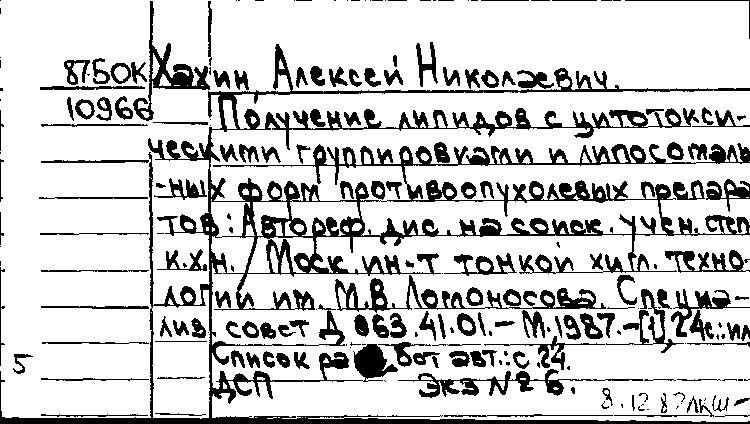 8750К Хахин, Алексей Николаевич.
10966 Получение липидов с цитотокси-
ческими группировками и липосомаль
-ных форм противоопухолевых препара
тов: Автореф. дис. на соиск. учен. степ
к.х.н. Моск. ин-т тонкой хим. техно-
логии им. М.В. Ломоносова. Специа-
лиз. совет Д 063.41.01.- М., 1987.-[1], 24с.: ил
Список работ авт.: с.24.
5
ДСП Экз № 6.
8.12.87